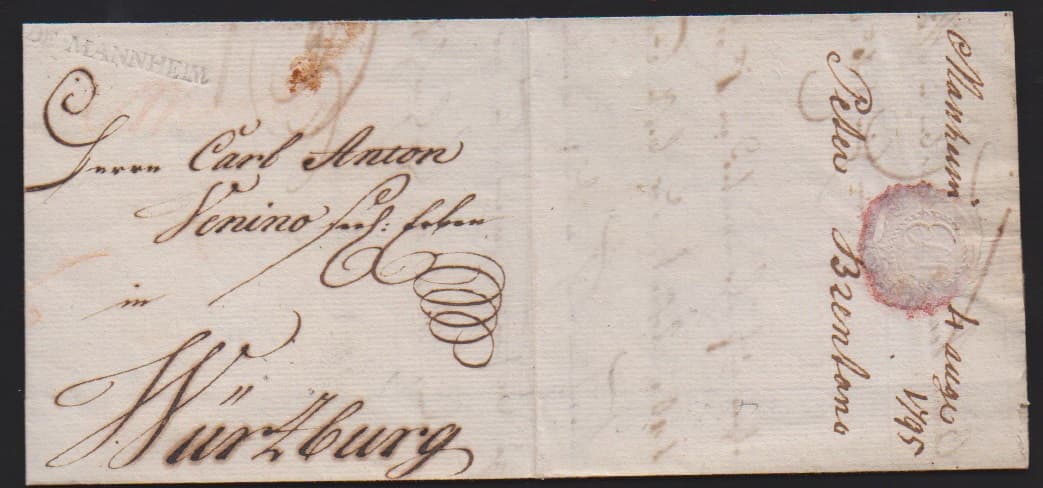 DE MANNHEIM
Herrn Carl Anton
Venino seel: Erben
in
Würtzburg
Manheim 4 aug
1795
Peter Brentano